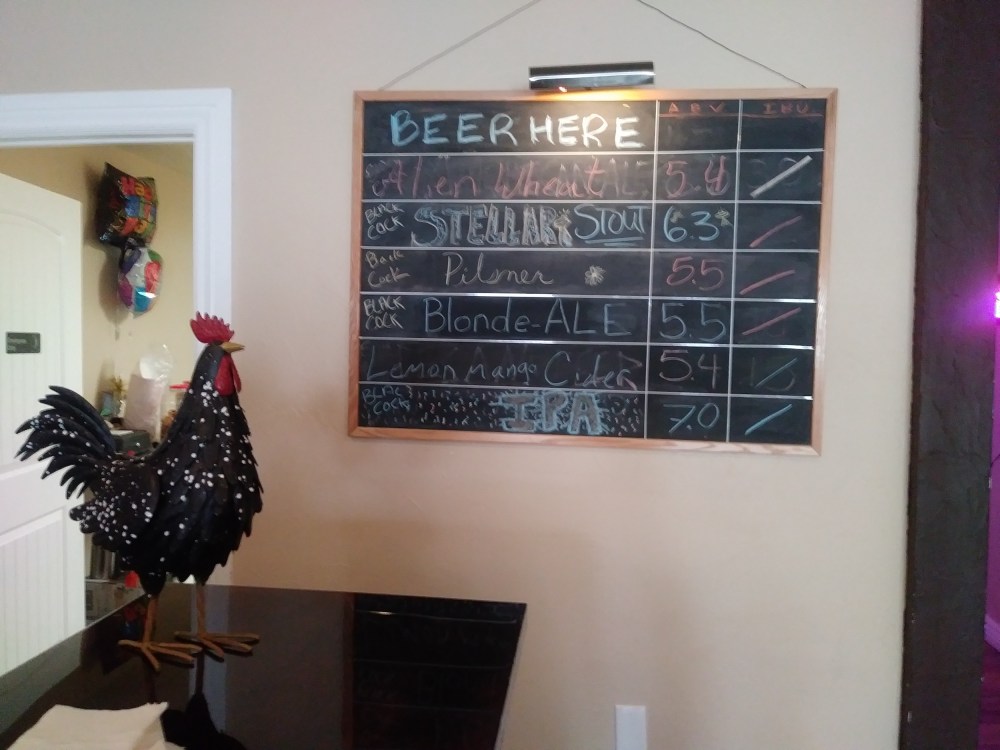 BEER HERE ABV IBU
Alien Wheat 5.4
BLACK COCK STELLAR STOUT 6.3
Black Cock Pilsner 5.5
BLACK COCK Blonde-ALE 5.5
Lemon Mango Cider 5.4
BLAC COCK IPA 7.0